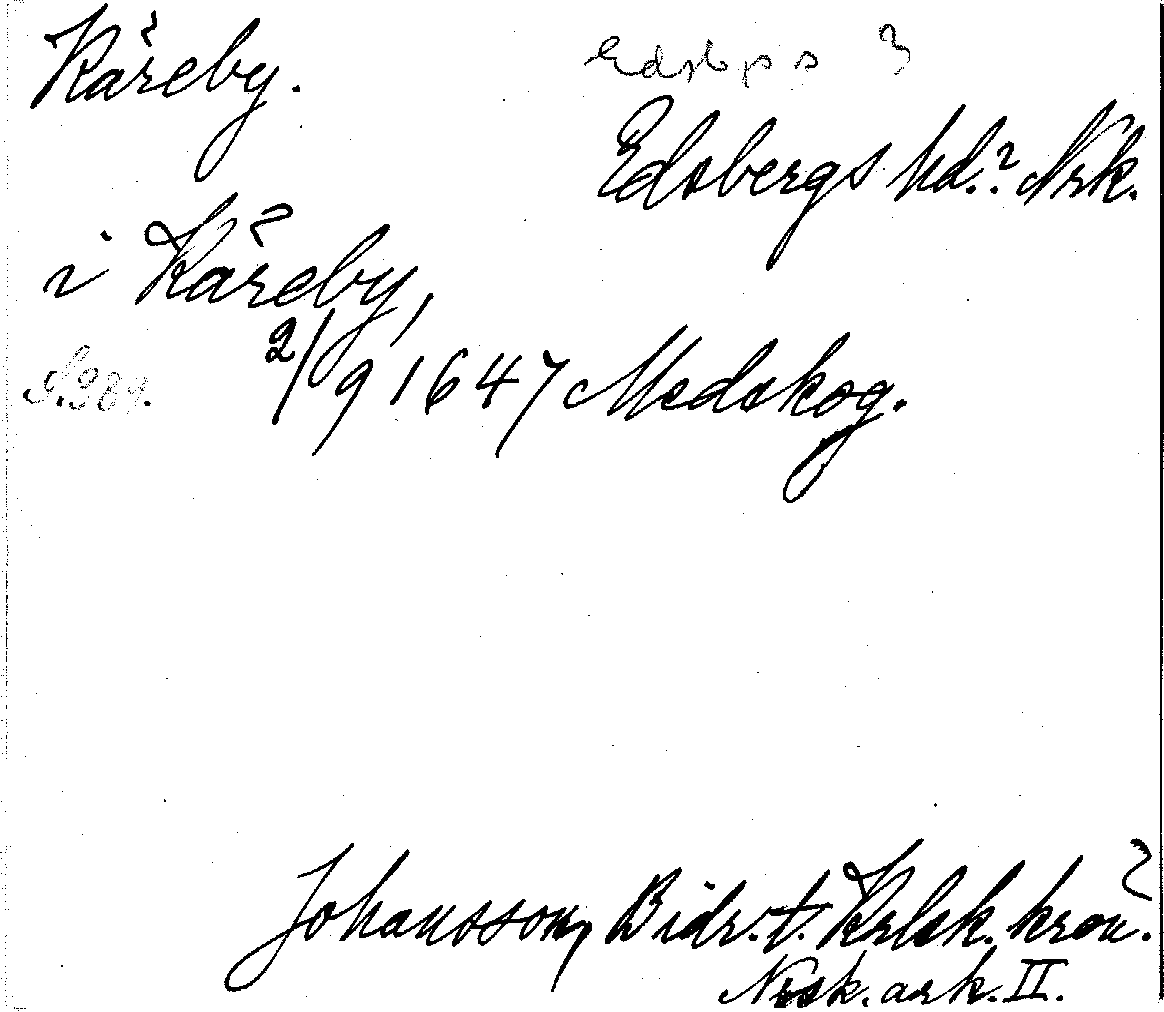 Kåreby.
Edsbergs hd. Nrk.
i Kåreby,
S. 389. 2/9 1647 Medskog.
Johansson, Bidr. t. Krlsk. krön.
Nrsk. ark. II.